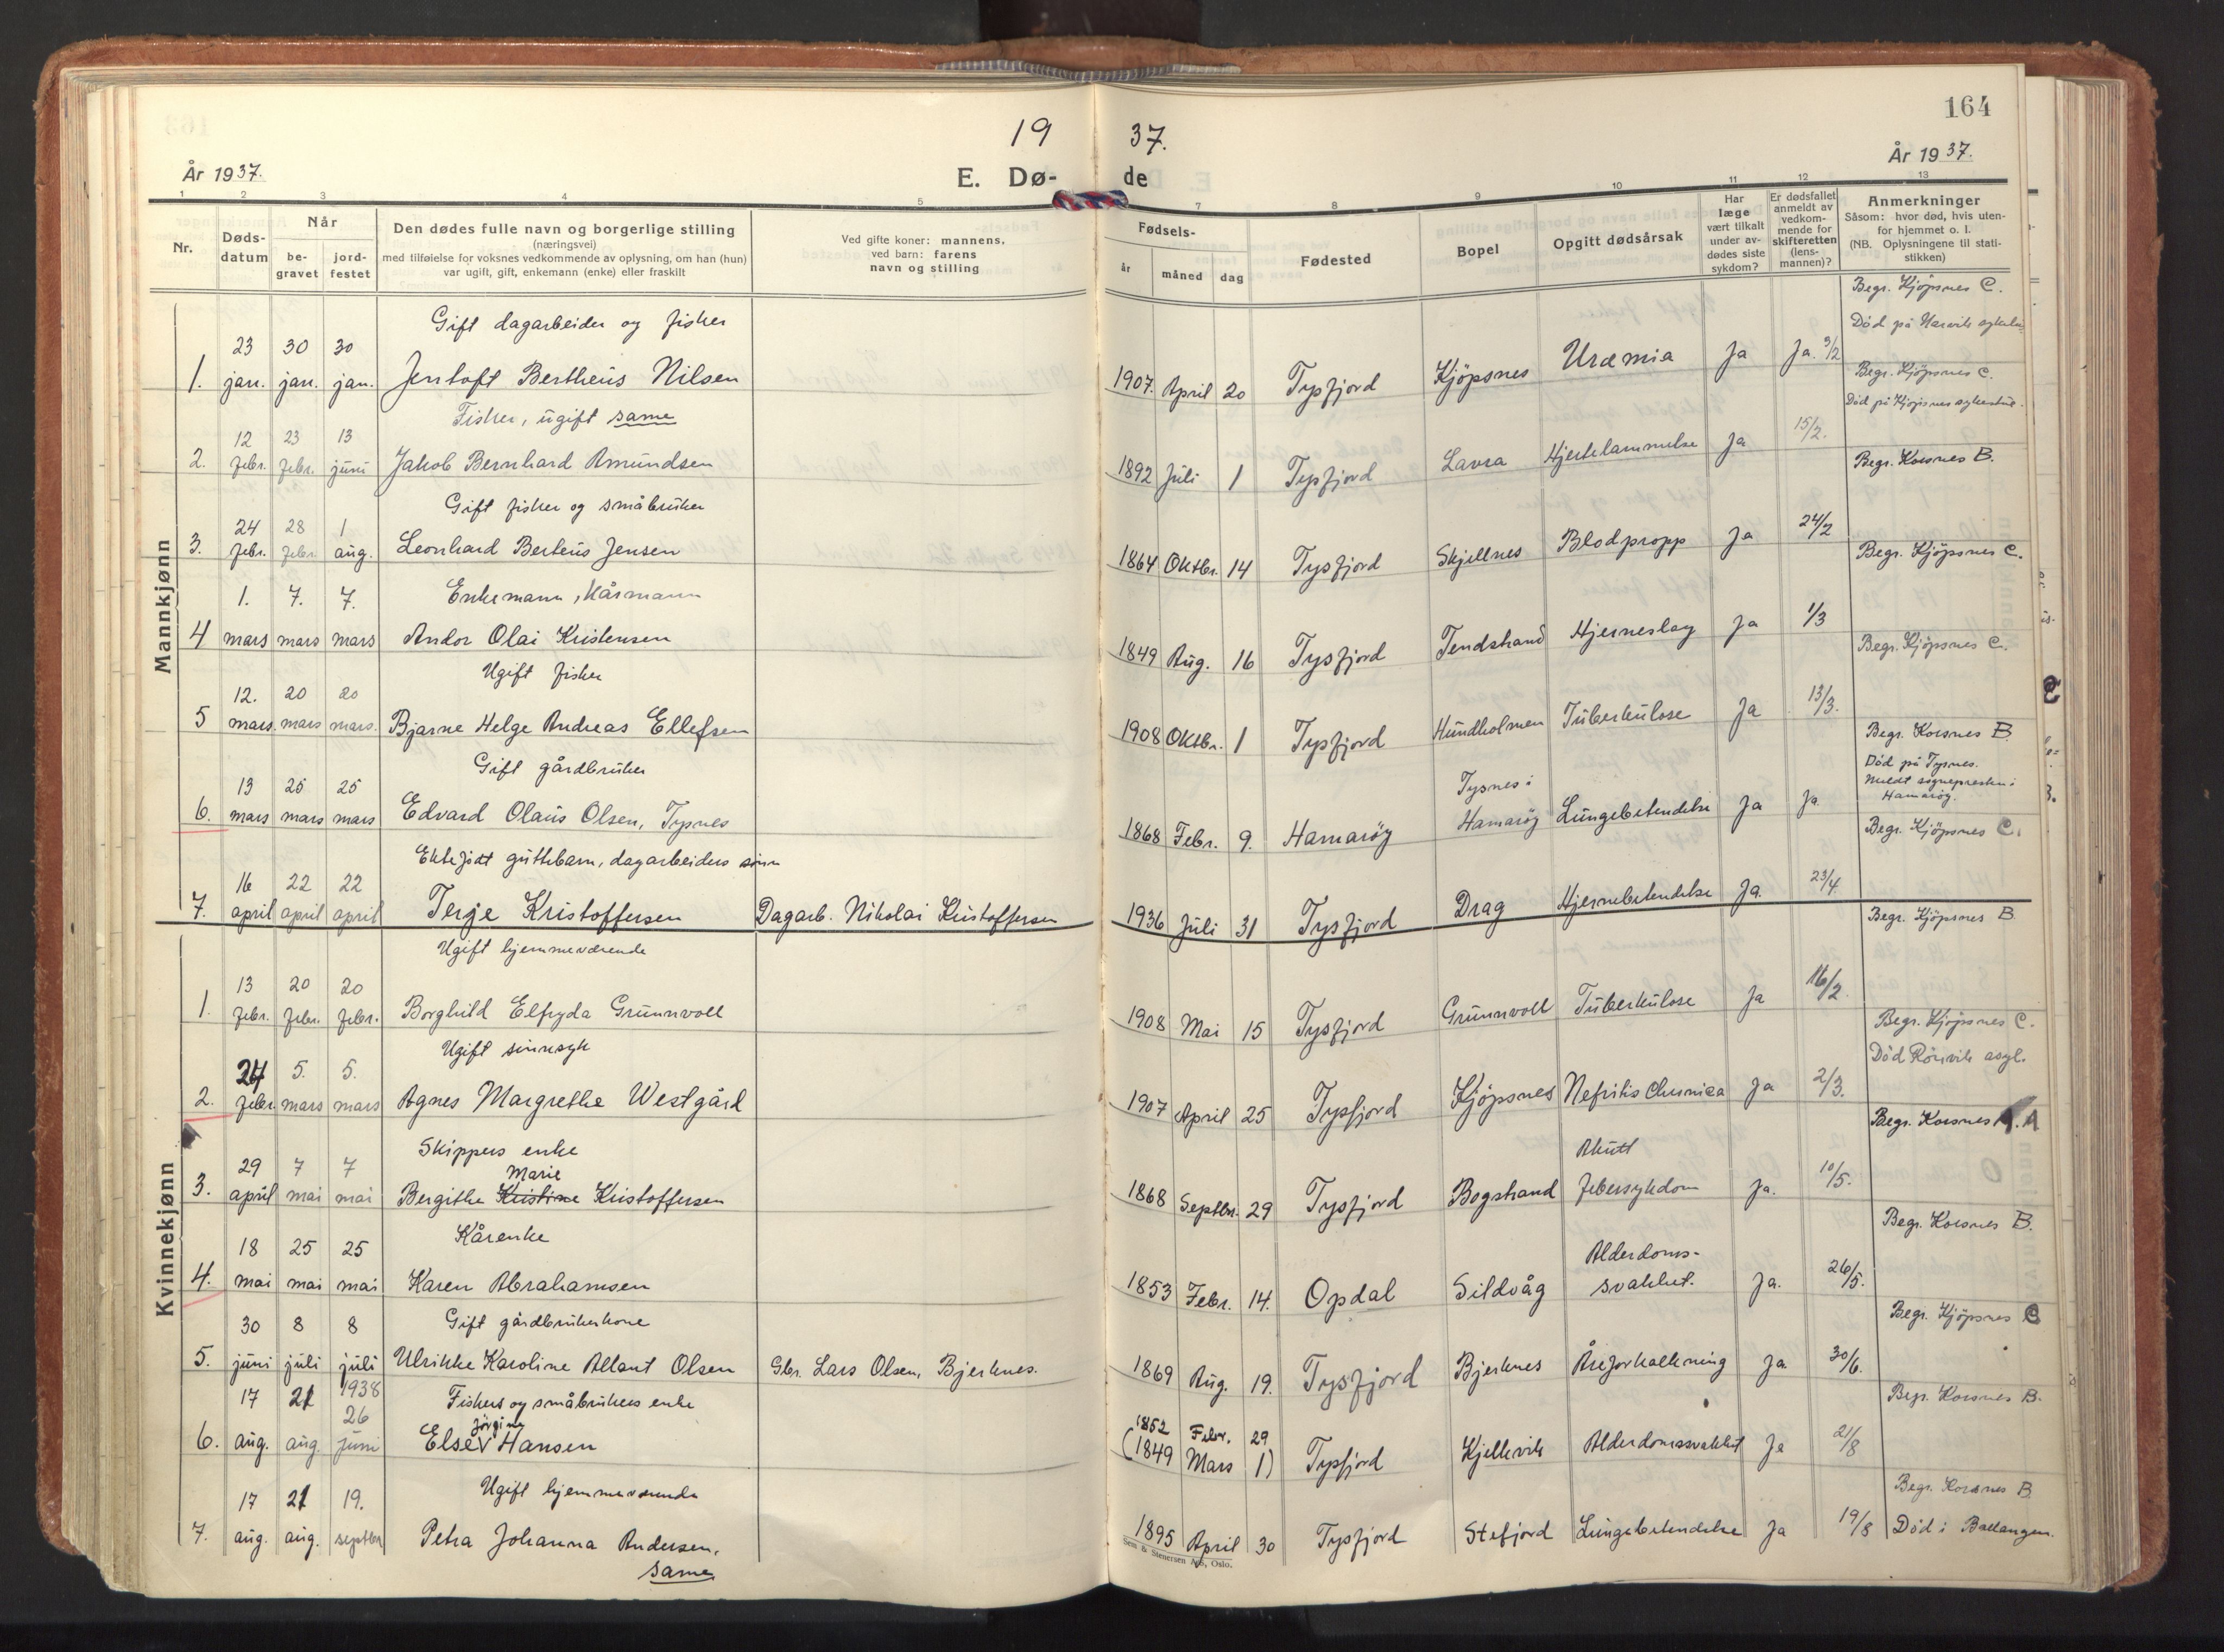 164
19 37.
År 1937. E. Dø- de År 1937.
1 2 3 4 5 7 8 9 10 11 12 13
Nr.
Døds-
datum
Når
be-
gravet
jord-
festet
Den dødes fulle navn og borgerlige stilling
(næringsvei)
med tilføielse for voksnes vedkommende av oplysning, om han (hun)
var ugift, gift, enkemann (enke) eller fraskilt
Ved gifte koner: mannens,
ved barn: farens
navn og stilling
Fødsels-
år måned dag
Fødested
Bopel
Opgitt dødsårsak
Har
læge
vært tilkalt
under av-
dødes siste
sykdom?
Er dødsfallet
anmeldt av
vedkom-
mende for
skifteretten
(lens-
mannen)?
Anmerkninger
Såsom: hvor død, hvis uten-
for hjemmet o. l.
(NB. Oplysningene til stati-
stikken)
Mannkjønn
Gift dagarbeider og fisker Begr. Kjöpsnes C.
23 30 30 Død på Narvik
1. jan. jan. jan. Jentoft Bertheus Nilsen 1907. April 20 Tysfjord Kjöpsnes Uræmia Ja Ja. 3/2
Fisker, ugift same Begr. Kjöpsnes C.
12 23 13 Död på Kjöpsnes sykestue.
2. febr. febr. juni Jakob Bernhard Amundsen 1892 Juli 1 Tysfjord Lavra Hjertelammelse Ja 15/2.
Gift fisker og småbruker Begr. Korsnes B.
24 28 1
3. febr. febr. aug. Leonhard Berteus Jensen 1864 Oktbr. 14 Tysfjord Skjellnes Blodpropp Ja 24/2
Enkemann, Kårmann Begr. Kjöpsnes C.
1. 7. 7.
4 mars mars mars Andor Olai Kristensen 1849 Aug. 16 Tysfjord Tendstrand Hjerneslag Ja 1/3
Ugift fisker Begr. Kjöpsnes C.
12. 20 20
5 mars. mars mars. Bjarne Helge Andreas Ellefsen 1908 Oktbr. 1 Tysfjord Hundholmen Tuberkulose Ja 13/3.
Gift gårdbruker Begr. Korsnes B.
13 25 25 Död på Tysnes.
Meldt sognepresten i
Hamaröy.
6. mars mars mars Edvard Olaus Olsen, Tysnes 1868 Febr. 9. Hamaröy Tysnes i Hamaröy Lungebetendelse Ja Ja
Ektefödt guttebarn, dagarbeiders sönn Begr. Kjöpsnes C.
16 22 22
7. april april april Terje Kristoffersen Dagarb. Nikolai Kristoffersen 1936 Juli 31 Tysfjord Drag Hjernebetendelse Ja. 23/4.
Kvinnekjønn
Ugift hjemmeværende Begr. Kjöpsnes B.
13 20 20
1. febr. febr. febr. Borghild Elfryda Grunnvoll 1908 Mai 15 Tysfjord Grunnvoll Tuberkulose Ja 16/2.
Ugift sinnsyk Begr. Kjöpsnes C.
24 5. 5. Död Rönvik asyl.
2. febr. mars mars Agnes Margrethe Westgård 1907 April 25 Tysfjord Kjöpsnes Nefritis Chronica Ja 2/3.
Skippers enke Begr. Korsnes A
29 7 7 Marie Akutt
3. april mai mai Bergithe Kristine Kristoffersen 1868 Septbr. 29 Tysfjord Bogstrand febersykdom Ja. 10/5.
Kårenke Begr. Korsnes B.
18 25 25 Alderdoms-
4. mai mai mai Karen Abrahamsen 1853 Febr. 14. Opdal Sildvåg svakhet. Ja. 26/5.
Gift gårdbrukerkone Begr. Kjöpsnes C
30 8 8
5. juni juli juli Ulrikke Karoline Allant Olsen Gbr. Lars Olsen, Bjerknes. 1869 Aug. 19. Tysfjord Bjerknes Åreforkalkning Ja 30/6.
17 21 1938 Fiskers og småbrukers enke Begr. Korsnes B.
26 Jörgine 1852 Febr. 29
6. aug. aug. juni Else V Hansen (1849 Mars 1) Tysfjord Kjellvik Alderdomssvakhet Ja 21/8
Ugift hjemmeværende Begr. Korsnes B.
17 21 19.
7. aug. aug. septbr Petra Johanna Andersen, 1895 April 30 Tysfjord Stefjord Lungebetendelse Ja 19/8 Död i Ballangen.
same
Sem & Stenersen A/S, Oslo.